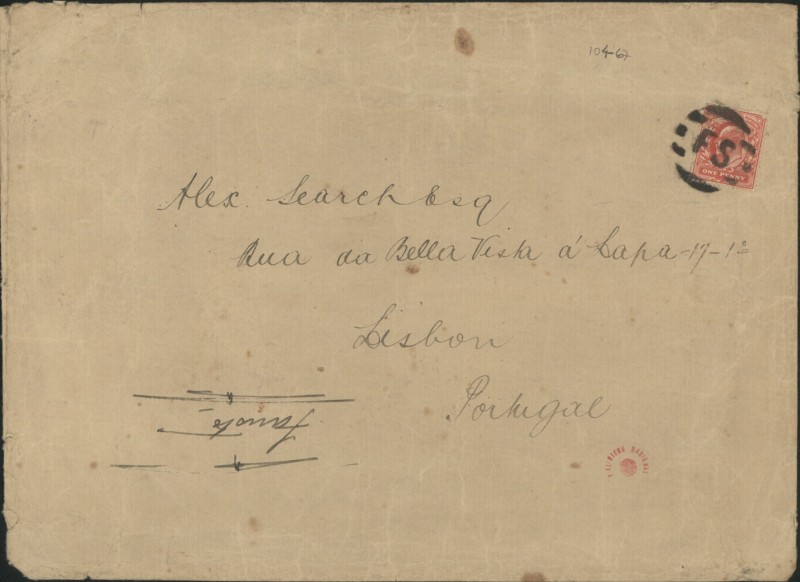 104-67
FS
ONE PENNY
Alex. Search Esq
Rua da Bella Vista á Lapa-17-1º
Lisbon
Portugal
Fausto
NACIONAL